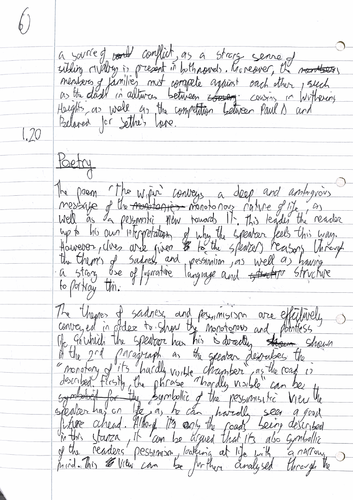 6
a source of conflict, as a strong sense of
sibling rivalry is present in both novels. Moreover, the
members of families must compete against each other, such
as the clash in cultures between cousins in Wuthering
Heights, as well as the competition between Paul D and
Beloved for Sethe's love.
1.20
Poetry
The poem "The Wiper" conveys a deep and ambiguous
message of the monotonous nature of life, as
well as a pessimistic view towards it. This leaves the reader
up to his own interpretation of why the speaker feels this way.
However, clues are given to the speakers reasons through
the themes of sadness and pessimism, as well as having
a strong use of figurative language and structure
to portray this.
The themes of sadness and pessimisism are effectively
conveyed in order to show the monotonous and pointless
life in which the speaker has. This is directly shown
in the 2nd paragraph as the speaker describes the
"monotony of its hardly visible chamber", as the road is
described. Firstly, the phrase "hardly visible" can be
symbolic of the pessimistic view the
speaker has on life, as he can hardly see a good
future ahead. Altho its only the road being described
in this stanza, it can be argued that its also symbolic
of the readers pessimism, looking at life with a narrow
mind. This view can be further analysed through the